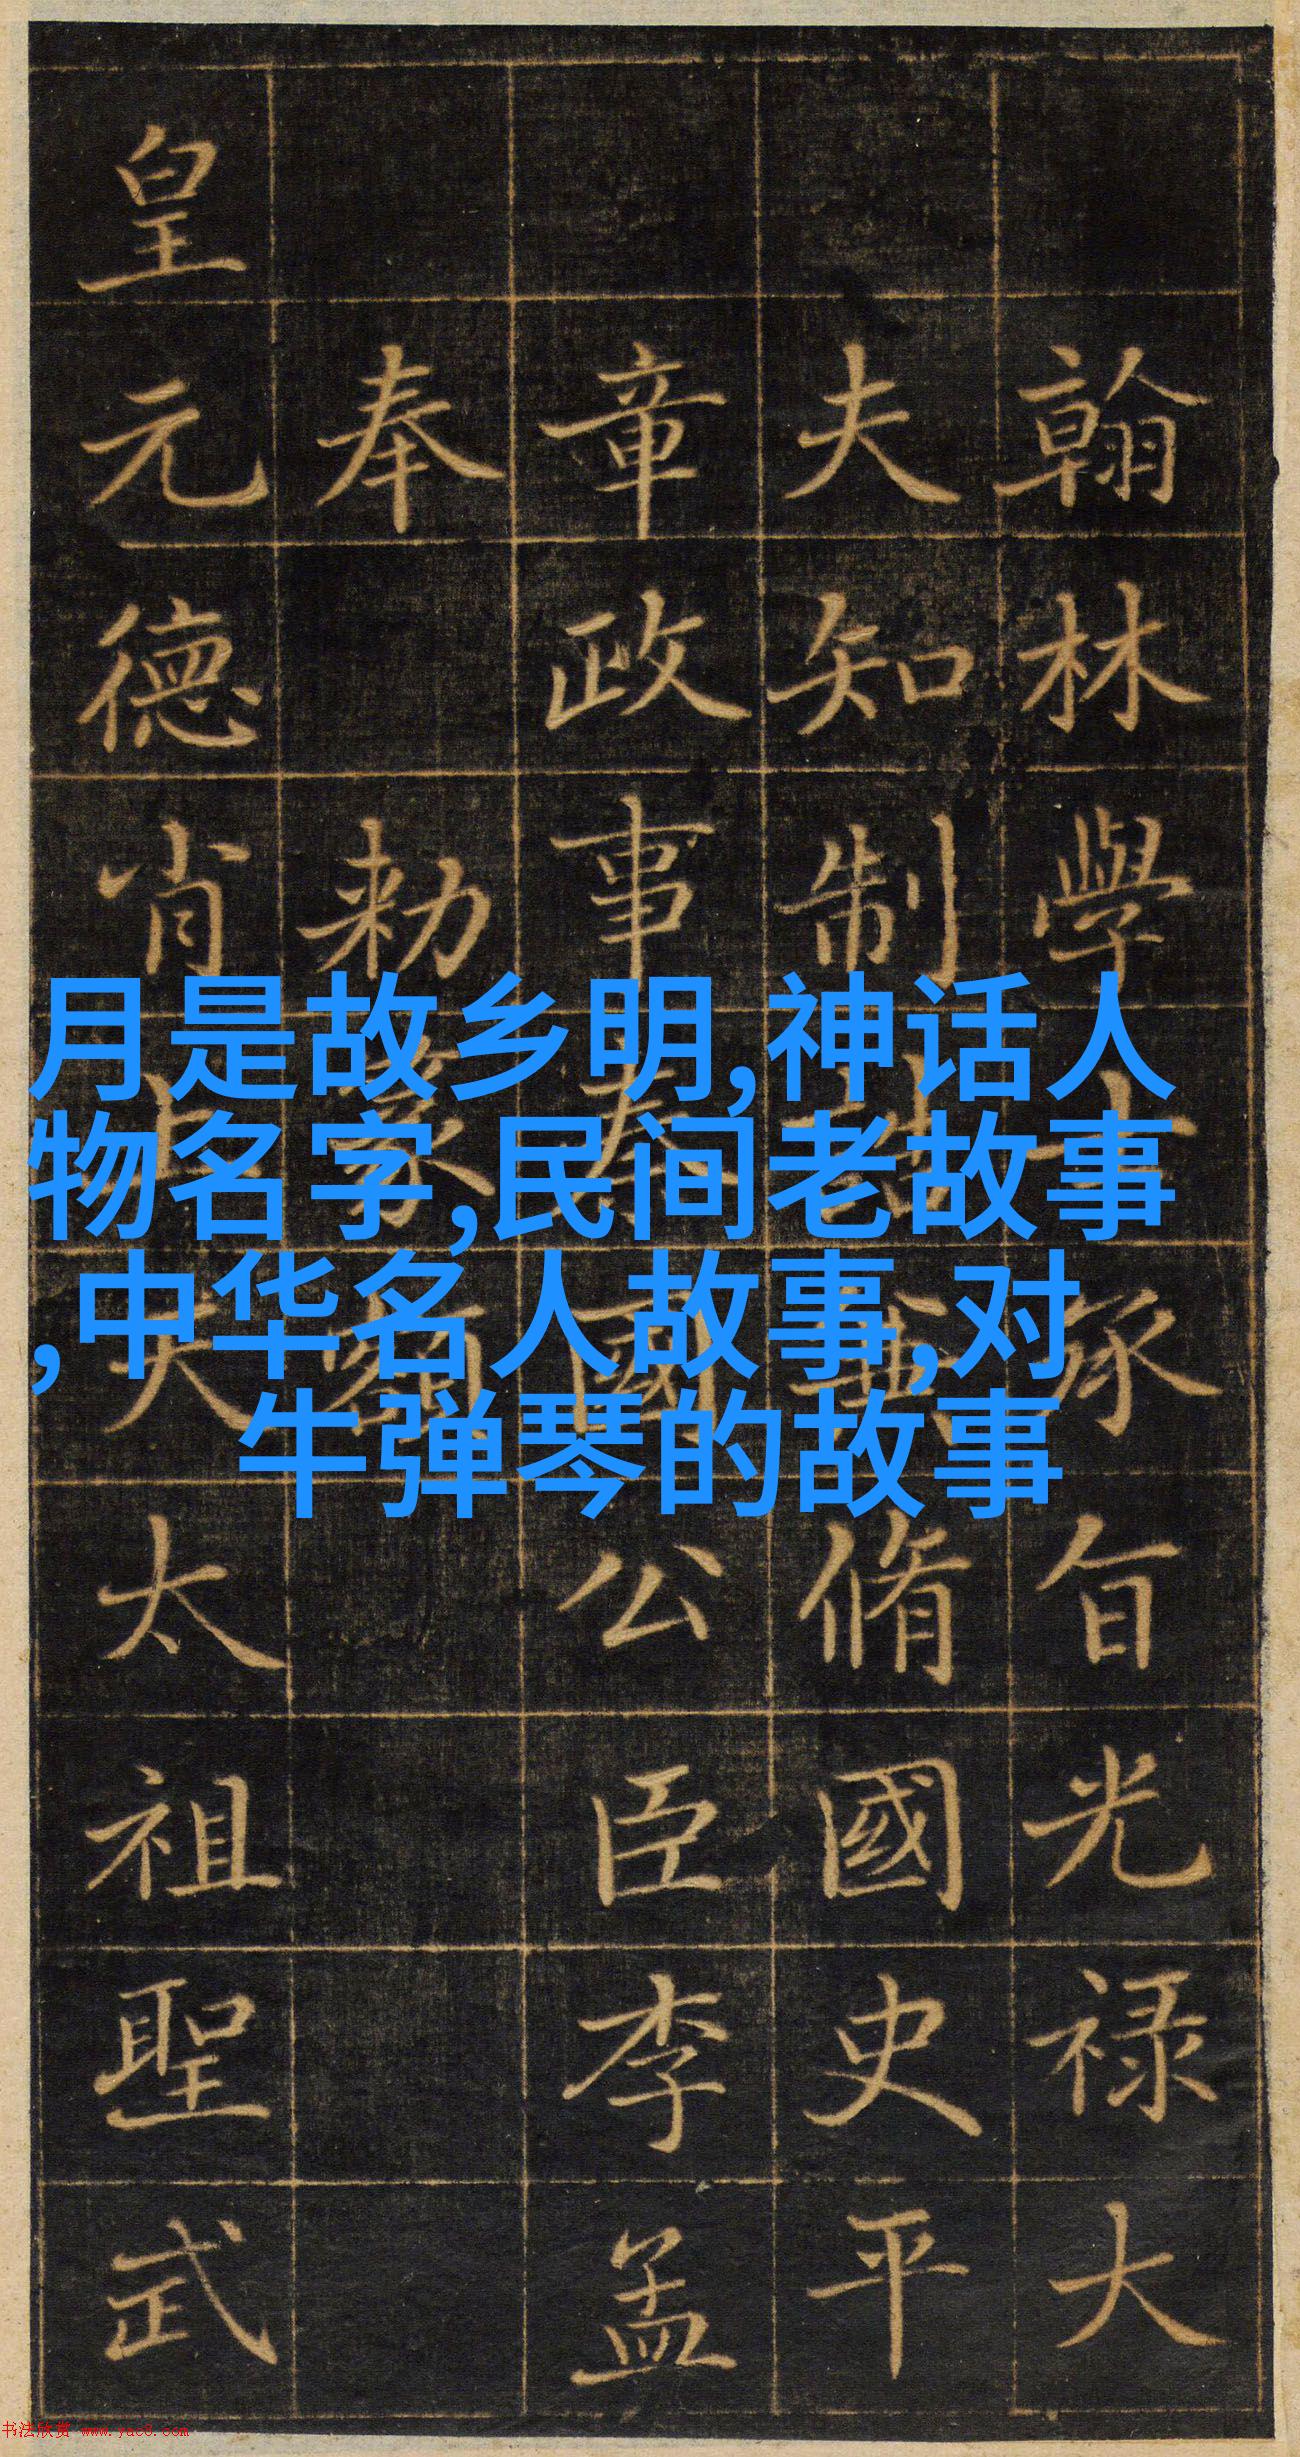 翰林學士承旨光禄大
夫知制脩國史平
章政事國公臣李孟
奉
勑篆額
皇
元德肖天太祖聖武
月是故乡明,神话人
物名字,民间老故事
,中华名人故事,对
牛弹琴的故事
书法欣赏 www.yac8.com